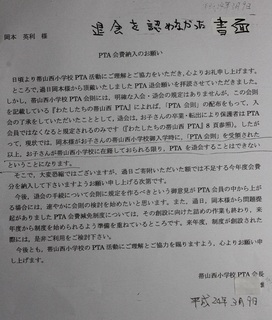 退会を認めなかった書面
岡本 英利 様
PTA 会費納入のお願い
日頃より帯山西小学校 PTA 活動にご理解とご協力をいただき、心よりお礼申し上げます。
ところで、過日岡本様から頂戴いたしました PTA 退会願いを拝読させていただきました。
しかし、帯山西小学校 PTA 会則には、明確な入会・退会の規定はありませんが、この会則
を記載している『わたしたちの帯山西 PTA』によれば、「PTA 会則」の配布をもって、入
会の了承をしていただいたこととして、退会は、お子さんの卒業・転出により保護者は PTA
会員ではなくなると規定されるのみです(『わたしたちの帯山西 PTA』 頁参照)。したがっ
て、現状では、岡本様がお子さんの帯山西小学校御入学時に、「PTA 会則」を受領された
以上、お子さんが帯山西小学校に在籍しておられる限り、PTA を退会することはできない
ということになります。
そこで、大変恐縮ではございますが、過日ご寄附いただいた額では不足する今年度会費
分を納入して下さいますようお願い申し上げる次第です。
今後、退会の手続について会則に規定を作るべきという御意見が PTA 会員の中から上が
る場合には、速やかに会則の検討を始めたいと思います。また、過日、岡本様から問題提
起がありました PTA 会費減免制度については、その創設に向けた詰めの作業を終わり、来
年度から制度を始められるよう準備を進めているところです。来年度、制度が創設された
際には、是非ご利用をご検討下さい。
今後とも、帯山西小学校 PTA の活動にご理解とご協力を賜りますよう、心よりお願い申
し上げます。
帯山西小学校 PTA 会長
平成24年3月9日